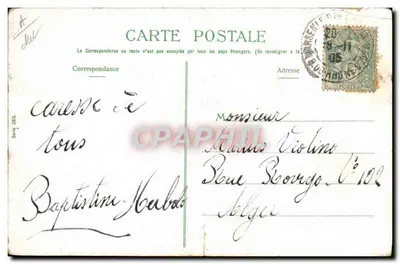 CARTE POSTALE
La Correspondance au recto n'est pas acceptée par tous les pays étrangers. (Se renseigner à la
Correspondance
Adresse
Série 383.
caresse de
tous
Baptistine
M
onsieur
Marius Violino
Rue Rovigo N° 192
Alger
CPAPHIL
20
05